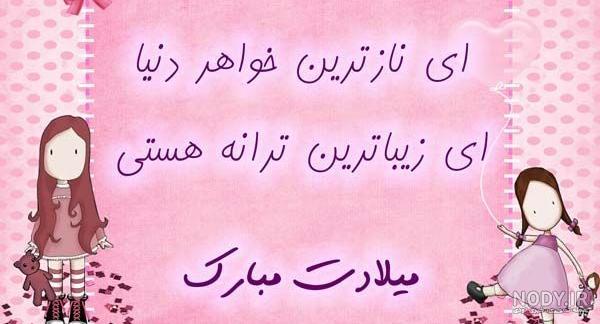 ای نازترین خواهر دنیا
ای زیباترین ترانه هستی
میلادت مبارک
NODY.IR